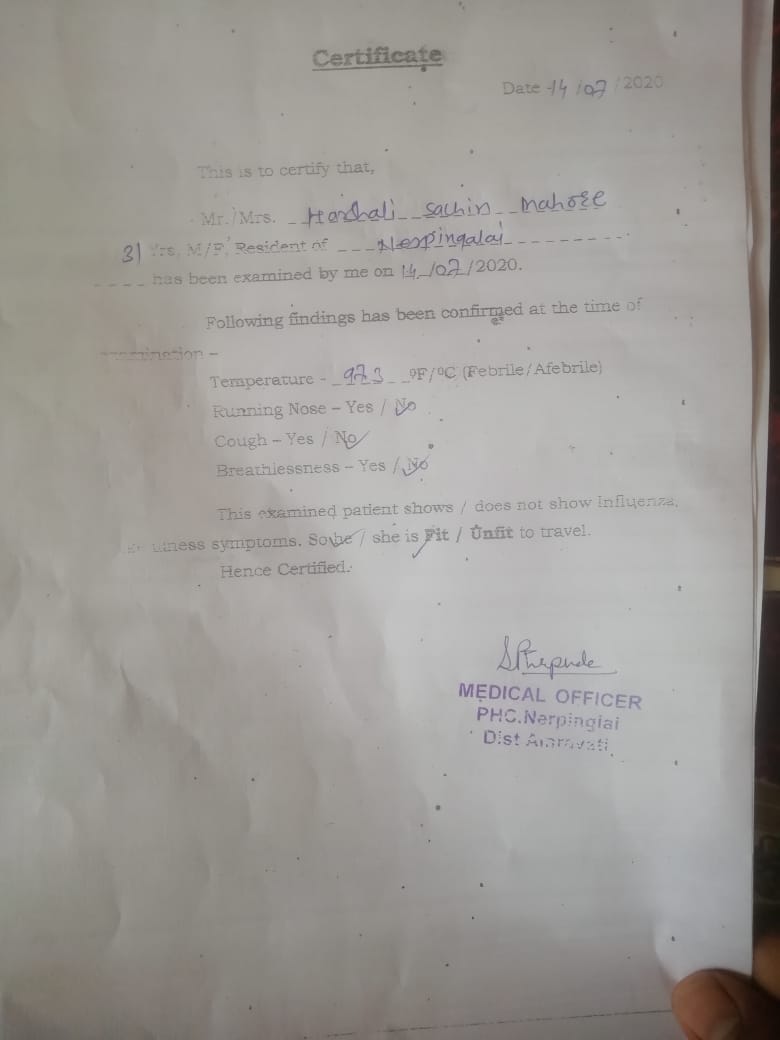 Certificate
Date 14/07/2020
This is to certify that,
Mr./Mrs. Harshali Sachin Mahore
31 Yrs, M/F, Resident of Nerpingalai
has been examined by me on 14/07/2020.
Following findings has been confirmed at the time of
examination –
Temperature - 973 ºF/ºC (Febrile/Afebrile)
Running Nose – Yes / No
Cough – Yes / No
Breathlessness – Yes / No
This examined patient shows / does not show Influenza,
illness symptoms. So he / she is Fit / Unfit to travel.
Hence Certified.
MEDICAL OFFICER
PHC.Nerpinglai
Dist Amravati